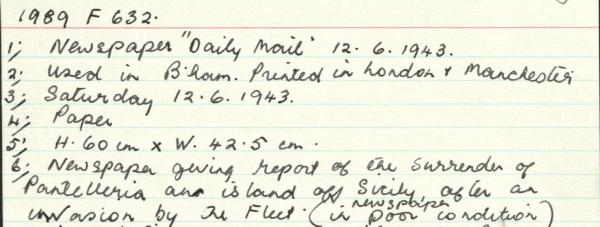 1989 F 632.
1; Newspaper "Daily Mail" 12.6.1943.
2; Used in B'ham. Printed in London & Manchester
3; Saturday 12.6.1943.
4; Paper
5; H. 60 cm x W. 42.5 cm.
6; Newspaper giving report of the surrender of
Pantelleria an island off Sicily, after an
invasion by The Fleet. (newspaper in poor condition)